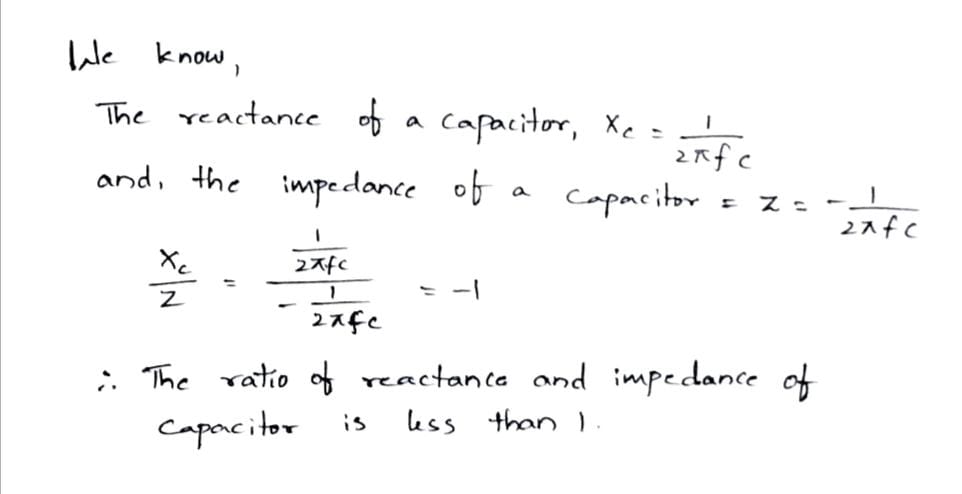 We know,
The reactance of a capacitor, Xc = 1/2πfc
and, the impedance of a capacitor = Z = -1/2πfC
Xc/Z = (1/2πfc)/(-1/2πfc) = -1
∴ The ratio of reactance and impedance of
capacitor is less than 1.